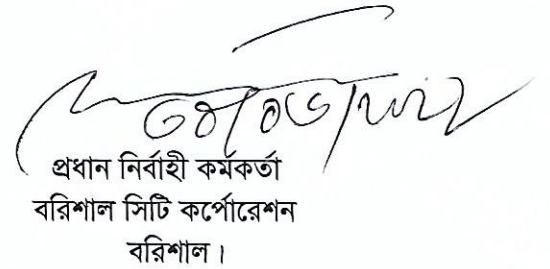 প্রধান নির্বাহী কর্মকর্তা
বরিশাল সিটি কর্পোরেশন
বরিশাল।